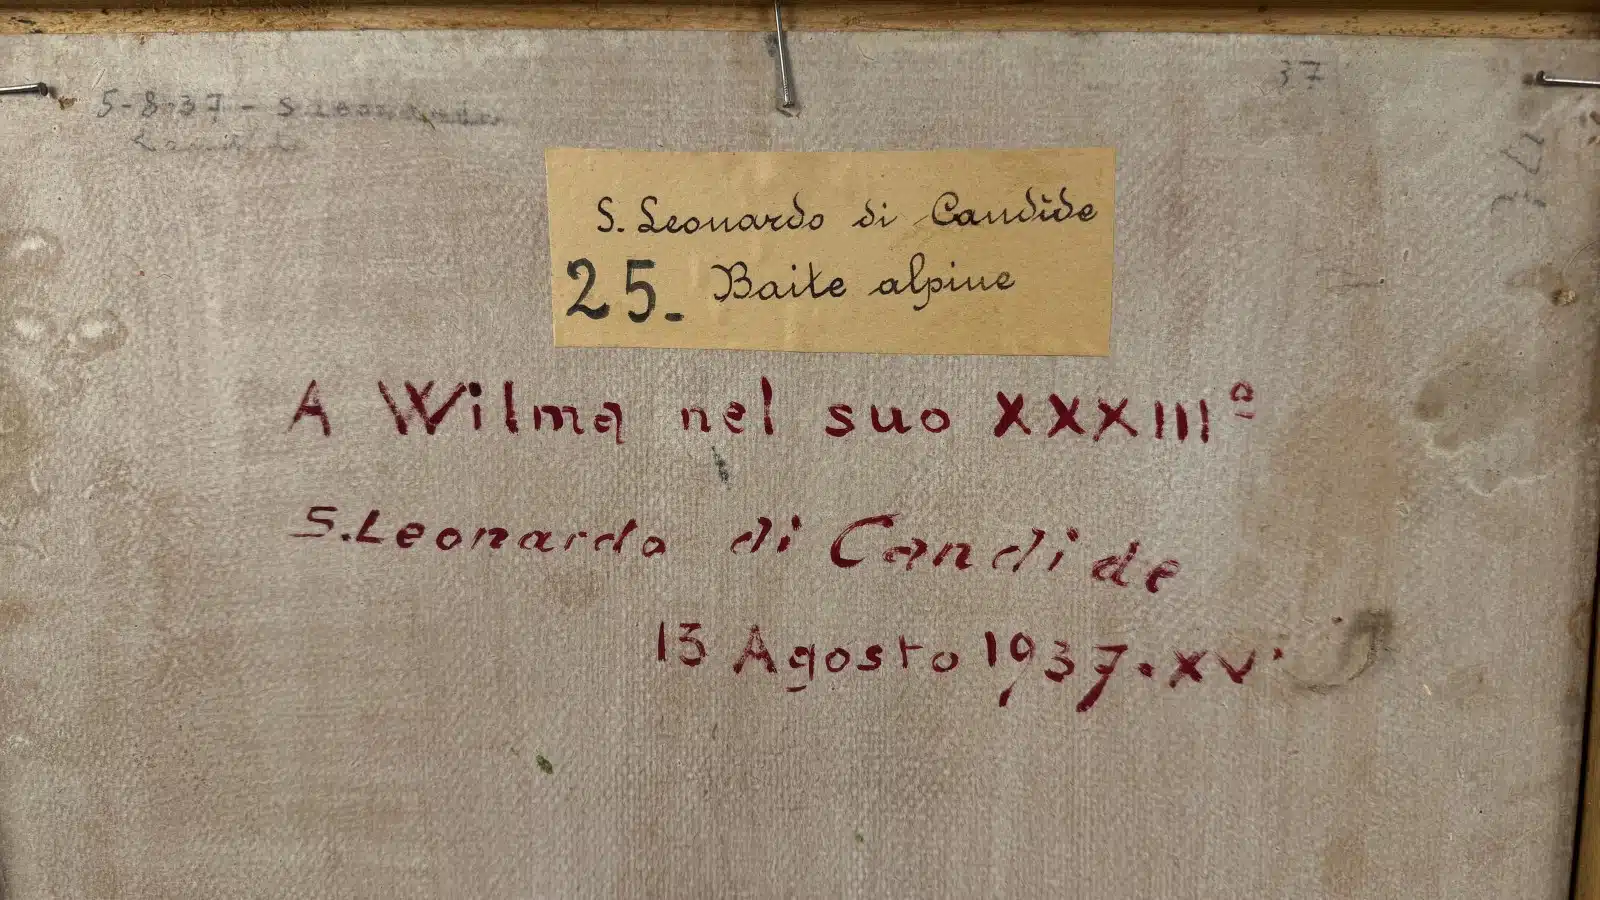 5-8-37 - S Leonardo
37
S. Leonardo di Candide
25. Baite alpine
A Wilma nel suo XXXIIIº
S. Leonardo di Candide
13 Agosto 1937·XV·